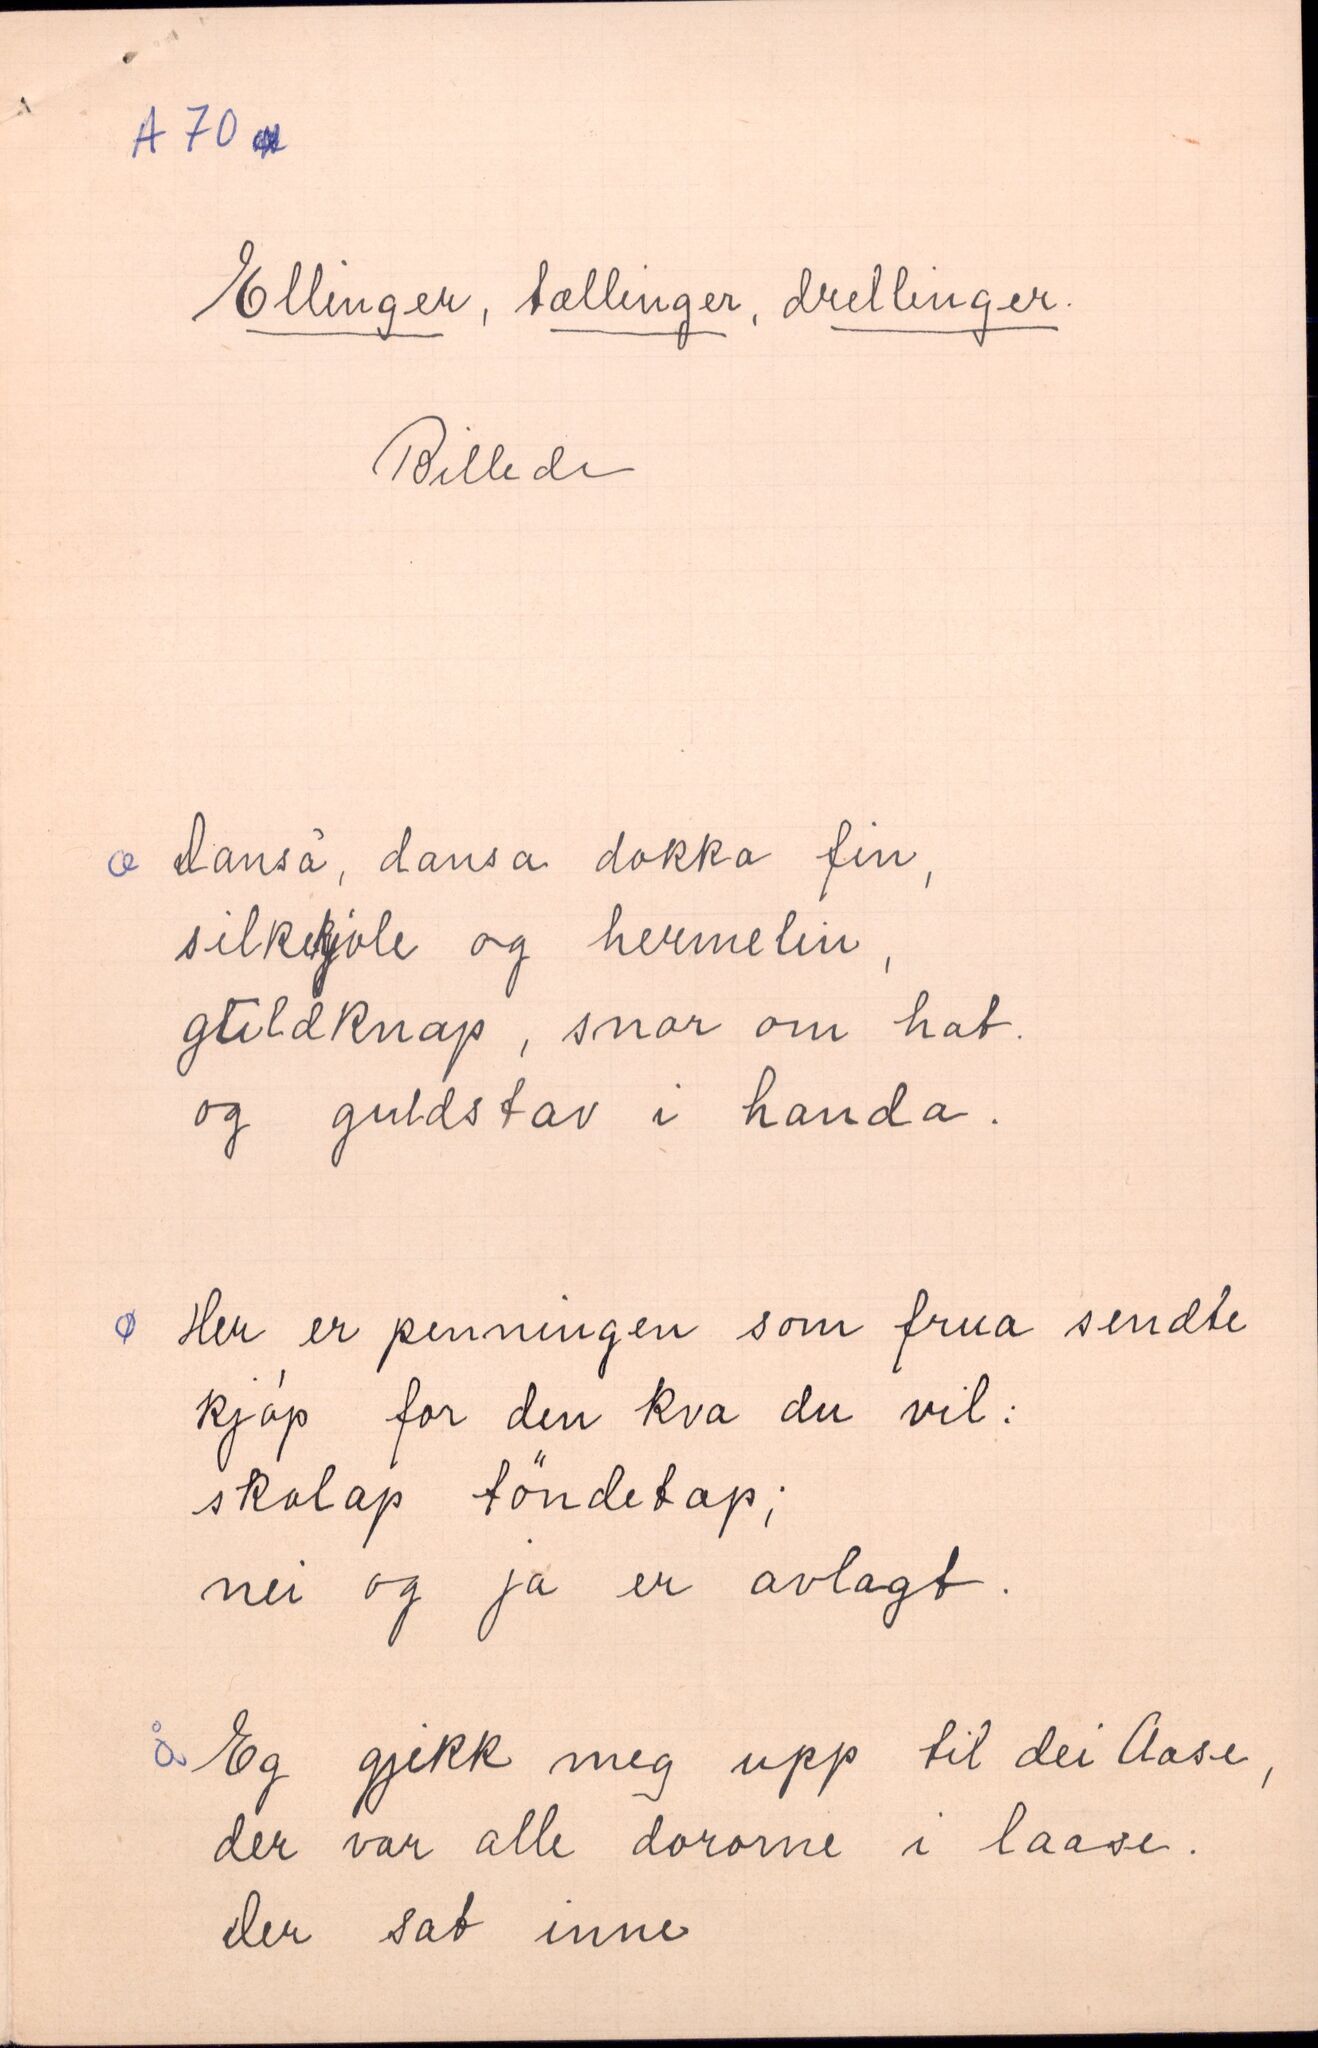 A 70
Ellinger, tællinger, drellinger.
Billede
æ Dansa, dansa dokka fin,
silkekjole og hermelin,
guldknap, snor om hat.
og guldstav i handa.
ø Her er penningen som frua sendte
kjøp for den kva du vil:
skolap töndetap;
nei og ja er avlagt.
å Eg gjekk meg upp til dei Aase,
der var alle dororne i laase.
Der sat inne